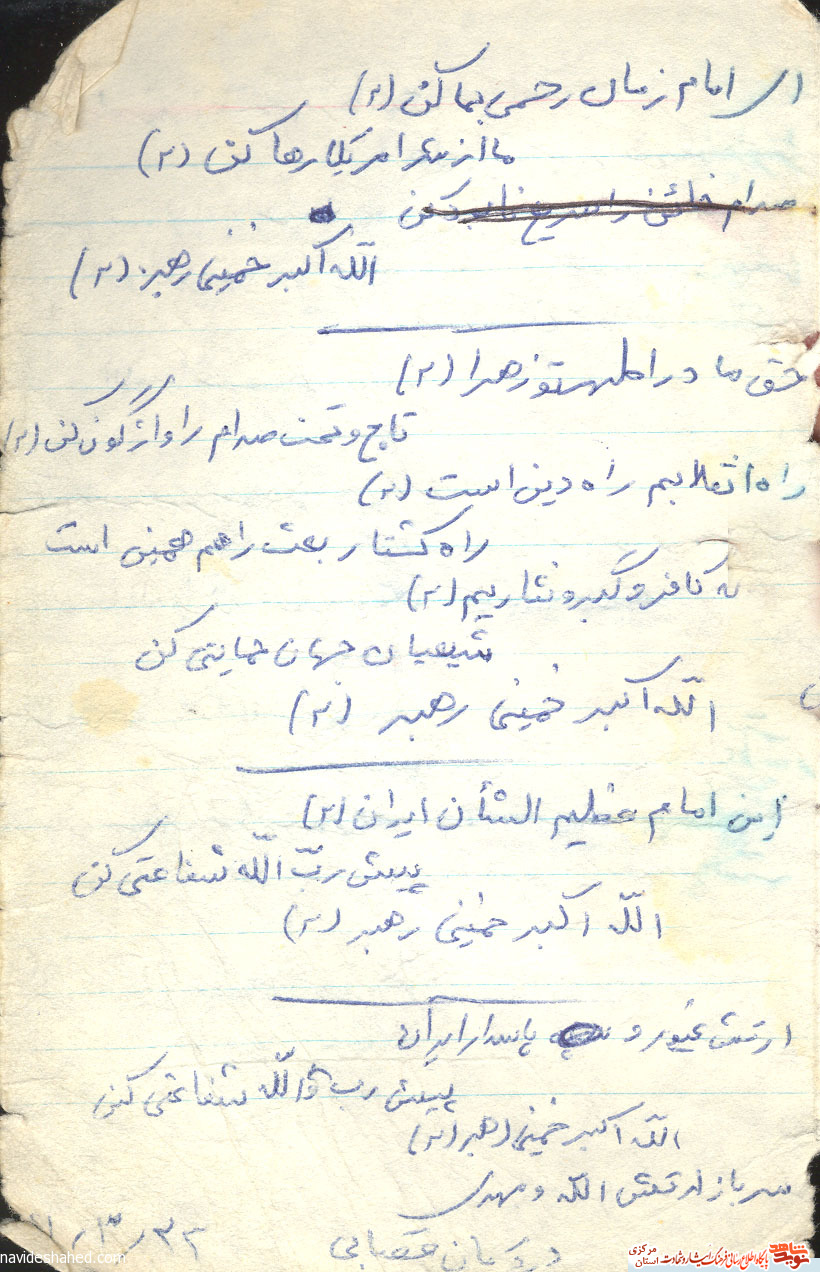 ای امام زمان رحمی بما کن (۲)
ما از شر امریکا رها کن (۲)
صدام خائن را سریع نابود کن
الله اکبر خمینی رهبر (۲)
حق ما در زهرا (۲)
تاج و تخت صدام را واژگون کن (۲)
راه انقلابیم راه دین است (۲)
راه کشتار بعث را هم همین است
کافر و نثاریم (۲)
شیعیان جهان حمایتی کن
اللّه اکبر خمینی رهبر (۲)
این امام عظیم الشأن ایران (۲)
پیش ربّ اللّه شفاعتی کن
اللّه اکبر خمینی رهبر (۲)
ارتش غیور و پاسدار ایران
پیش رب واللّه شفاعتی کن
اللّه اکبر خمینی رهبر (۲)
سرباز ارتش الله و مهدی
navideshahed.com
نوید شاهد
پایگاه اطلاع رسانی فرهنگ ایثار و شهادت
استان مرکزی